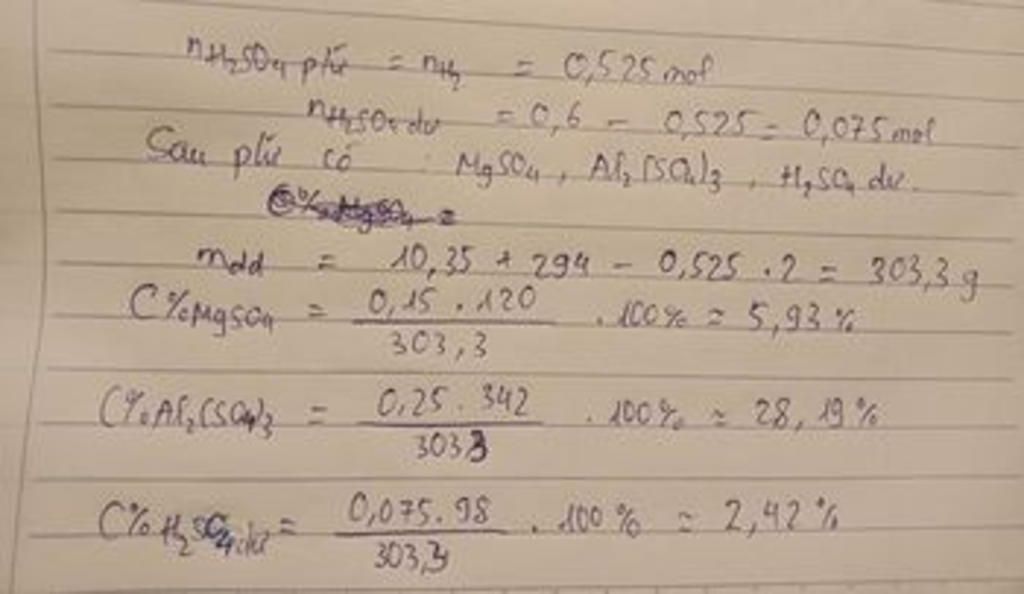 nH₂SO₄ pứ = nH₂ = 0,525 mol
nH₂SO₄ dư = 0,6 - 0,525 = 0,075 mol
Sau pứ có : MgSO₄, Al₂(SO₄)₃, H₂SO₄ dư.
mdd = 10,35 + 294 - 0,525 . 2 = 303,3 g
C%MgSO₄ = (0,15 . 120)/(303,3) . 100% = 5,93%
C%Al₂(SO₄)₃ = (0,25 . 342)/(303,3) . 100% = 28,19%
C%H₂SO₄ dư = (0,075 . 98)/(303,3) . 100% = 2,42%